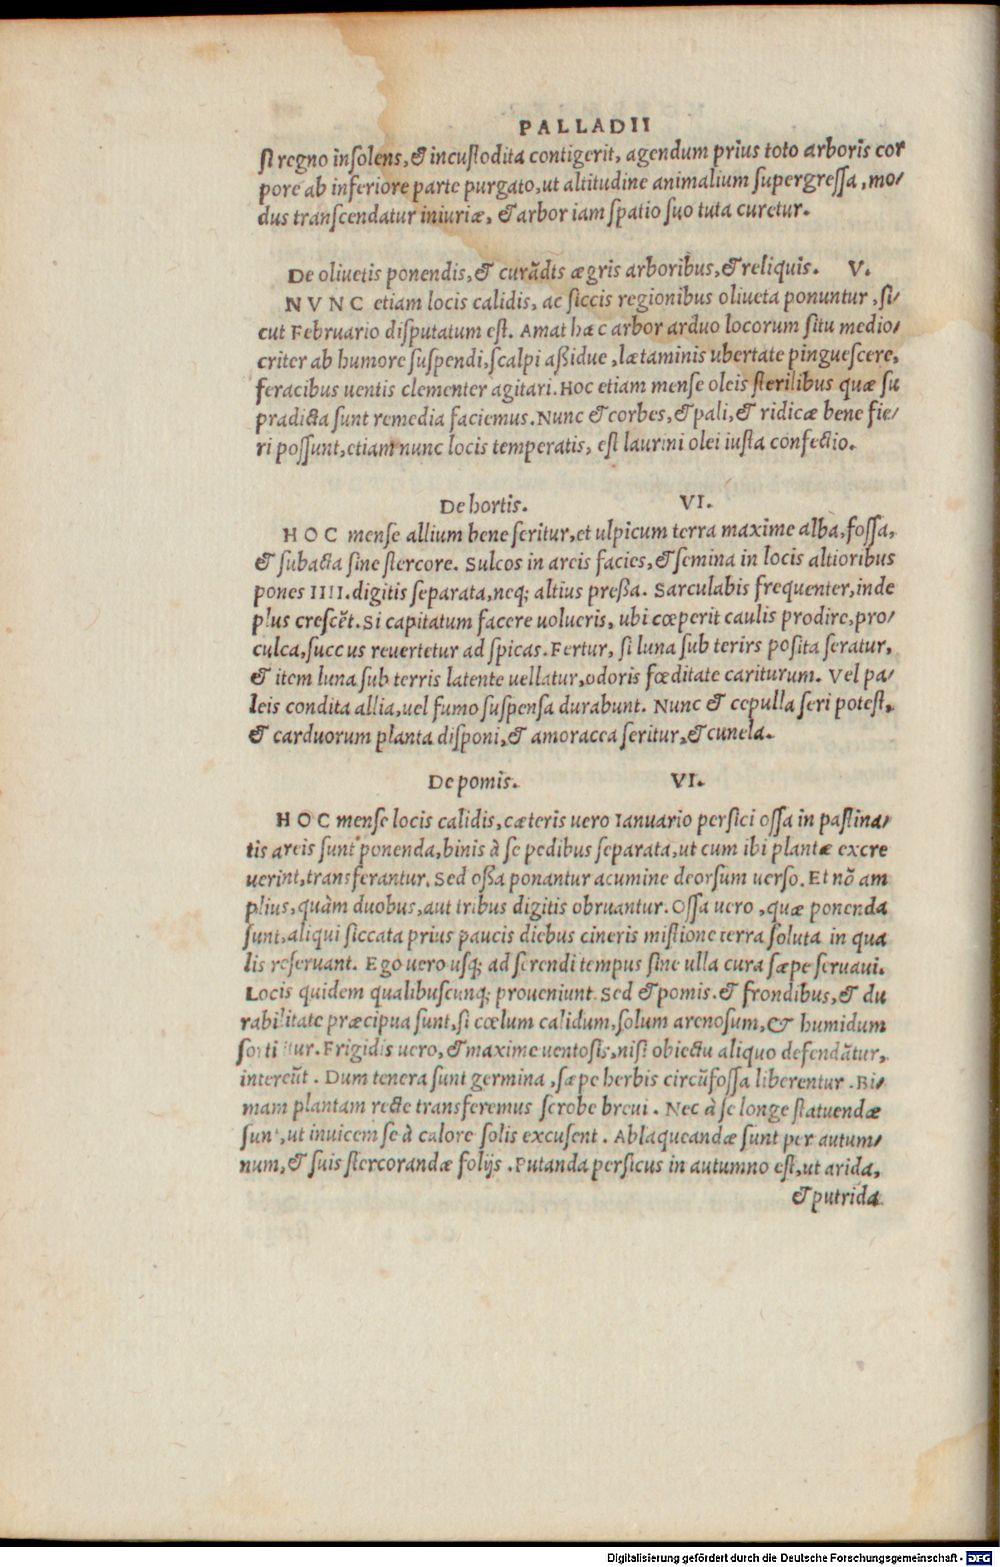 PALLADII
st regno insolens, & incustodita contigerit, agendum prius toto arboris cor
pore ab inferiore parte purgato, ut altitudine animalium supergressa, mo/
dus transcendatur iniuriæ, & arbor iam spatio suo tuta curetur.
De oliuetis ponendis, & curādis ægris arboribus, & reliquis. V.
NVNC etiam locis calidis, ac siccis regionibus oliueta ponuntur, si/
cut Februario disputatum est. Amat hæc arbor arduo locorum situ medio/
criter ab humore suspendi, scalpi aßidue, lætaminis ubertate pinguescere,
feracibus uentis clementer agitari. Hoc etiam mense oleis sterilibus quæ su
pradicta sunt remedia faciemus. Nunc & corbes, & pali, & ridicæ bene fie/
ri possunt, etiam nunc locis temperatis, est laurini olei iusta confectio.
De hortis. VI.
HOC mense allium bene seritur, et ulpicum terra maxime alba, fossa,
& subacta sine stercore. Sulcos in areis facies, & semina in locis altioribus
pones IIII. digitis separata, neq; altius preßa. Sarculabis frequenter, inde
plus crescēt. Si capitatum facere uolueris, ubi cœperit caulis prodire, pro/
culca, succus reuertetur ad spicas. Fertur, si luna sub terirs posita seratur,
& item luna sub terris latente uellatur, odoris fœditate cariturum. Vel pa/
leis condita allia, uel fumo suspensa durabunt. Nunc & cepulla seri potest,
& carduorum planta disponi, & amoracea seritur, & cunela.
De pomis. VI.
HOC mense locis calidis, cæteris uero Ianuario persici ossa in pastina/
tis areis sunt ponenda, binis à se pedibus separata, ut cum ibi plantæ excre
uerint, transferantur. Sed oßa ponantur acumine deorsum uerso. Et nō am
plius, quàm duobus, aut tribus digitis obruantur. Ossa uero, quæ ponenda
sunt, aliqui siccata prius paucis diebus cineris mistione terra soluta in qua
lis reseruant. Ego uero usq; ad serendi tempus sine ulla cura sæpe seruaui.
Locis quidem qualibuscunq; proueniunt. Sed & pomis. & frondibus, & du
rabilitate præcipua sunt, si cœlum calidum, solum arenosum, & humidum
sortiatur. Frigidis uero, & maxime uentosis, nisi obiectu aliquo defendātur,
intereūt. Dum tenera sunt germina, sæpe herbis circūfossa liberentur. Bi/
mam plantam recte transferemus scrobe breui. Nec à se longe statuendæ
sunt, ut inuicem se à calore solis excusent. Ablaqueandæ sunt per autum/
num, & suis stercorandæ folijs. Putanda persicus in autumno est, ut arida,
& putrida
Digitalisierung gefördert durch die Deutsche Forschungsgemeinschaft - DFG